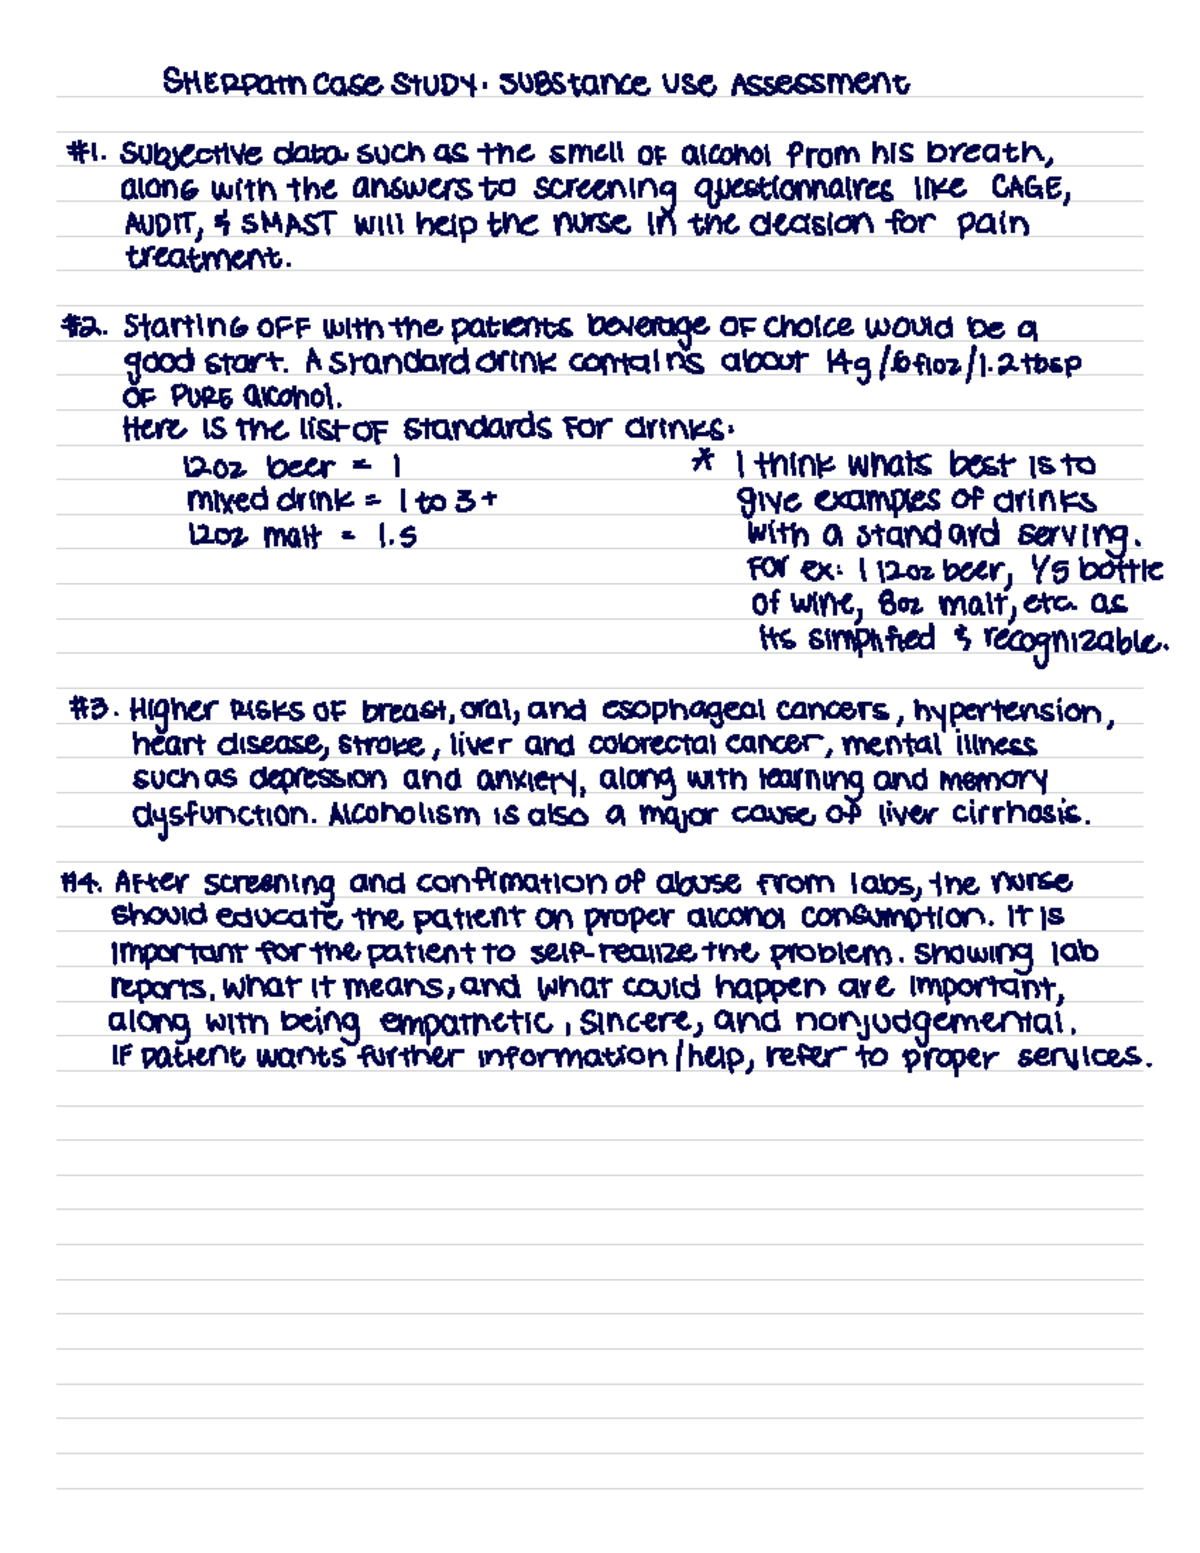 SHERPath Case STUDY: SUBStance Use Assessment
#1. Subjective data such as the smell of alcohol from his breath,
along with the answers to screening questionnaires like CAGE,
AUDIT, & SMAST will help the nurse in the decision for pain
treatment.
#2. Starting off with the patients beverage of choice would be a
good start. A standard drink contains about 14g/.6floz/1.2tbsp
of PURE alcohol.
Here is the list of standards for drinks:
12oz beer = 1
mixed drink = 1 to 3+
12oz malt = 1.5
* I think whats best is to
give examples of drinks
with a standard serving.
For ex: 1 12oz beer, 1/5 bottle
of wine, 8oz malt, etc. as
its simplified & recognizable.
#3. Higher Risks of breast, oral, and esophageal cancers, hypertension,
heart disease, stroke, liver and colorectal cancer, mental illness
such as depression and anxiety, along with learning and memory
dysfunction. Alcoholism is also a major cause of liver cirrhosis.
#4. After screening and confirmation of abuse from labs, the nurse
should educate the patient on proper alcohol consumption. It is
important for the patient to self-realize the problem. Showing lab
reports, what it means, and what could happen are important,
along with being empathetic, sincere, and nonjudgemental.
If patient wants further information/help, refer to proper services.